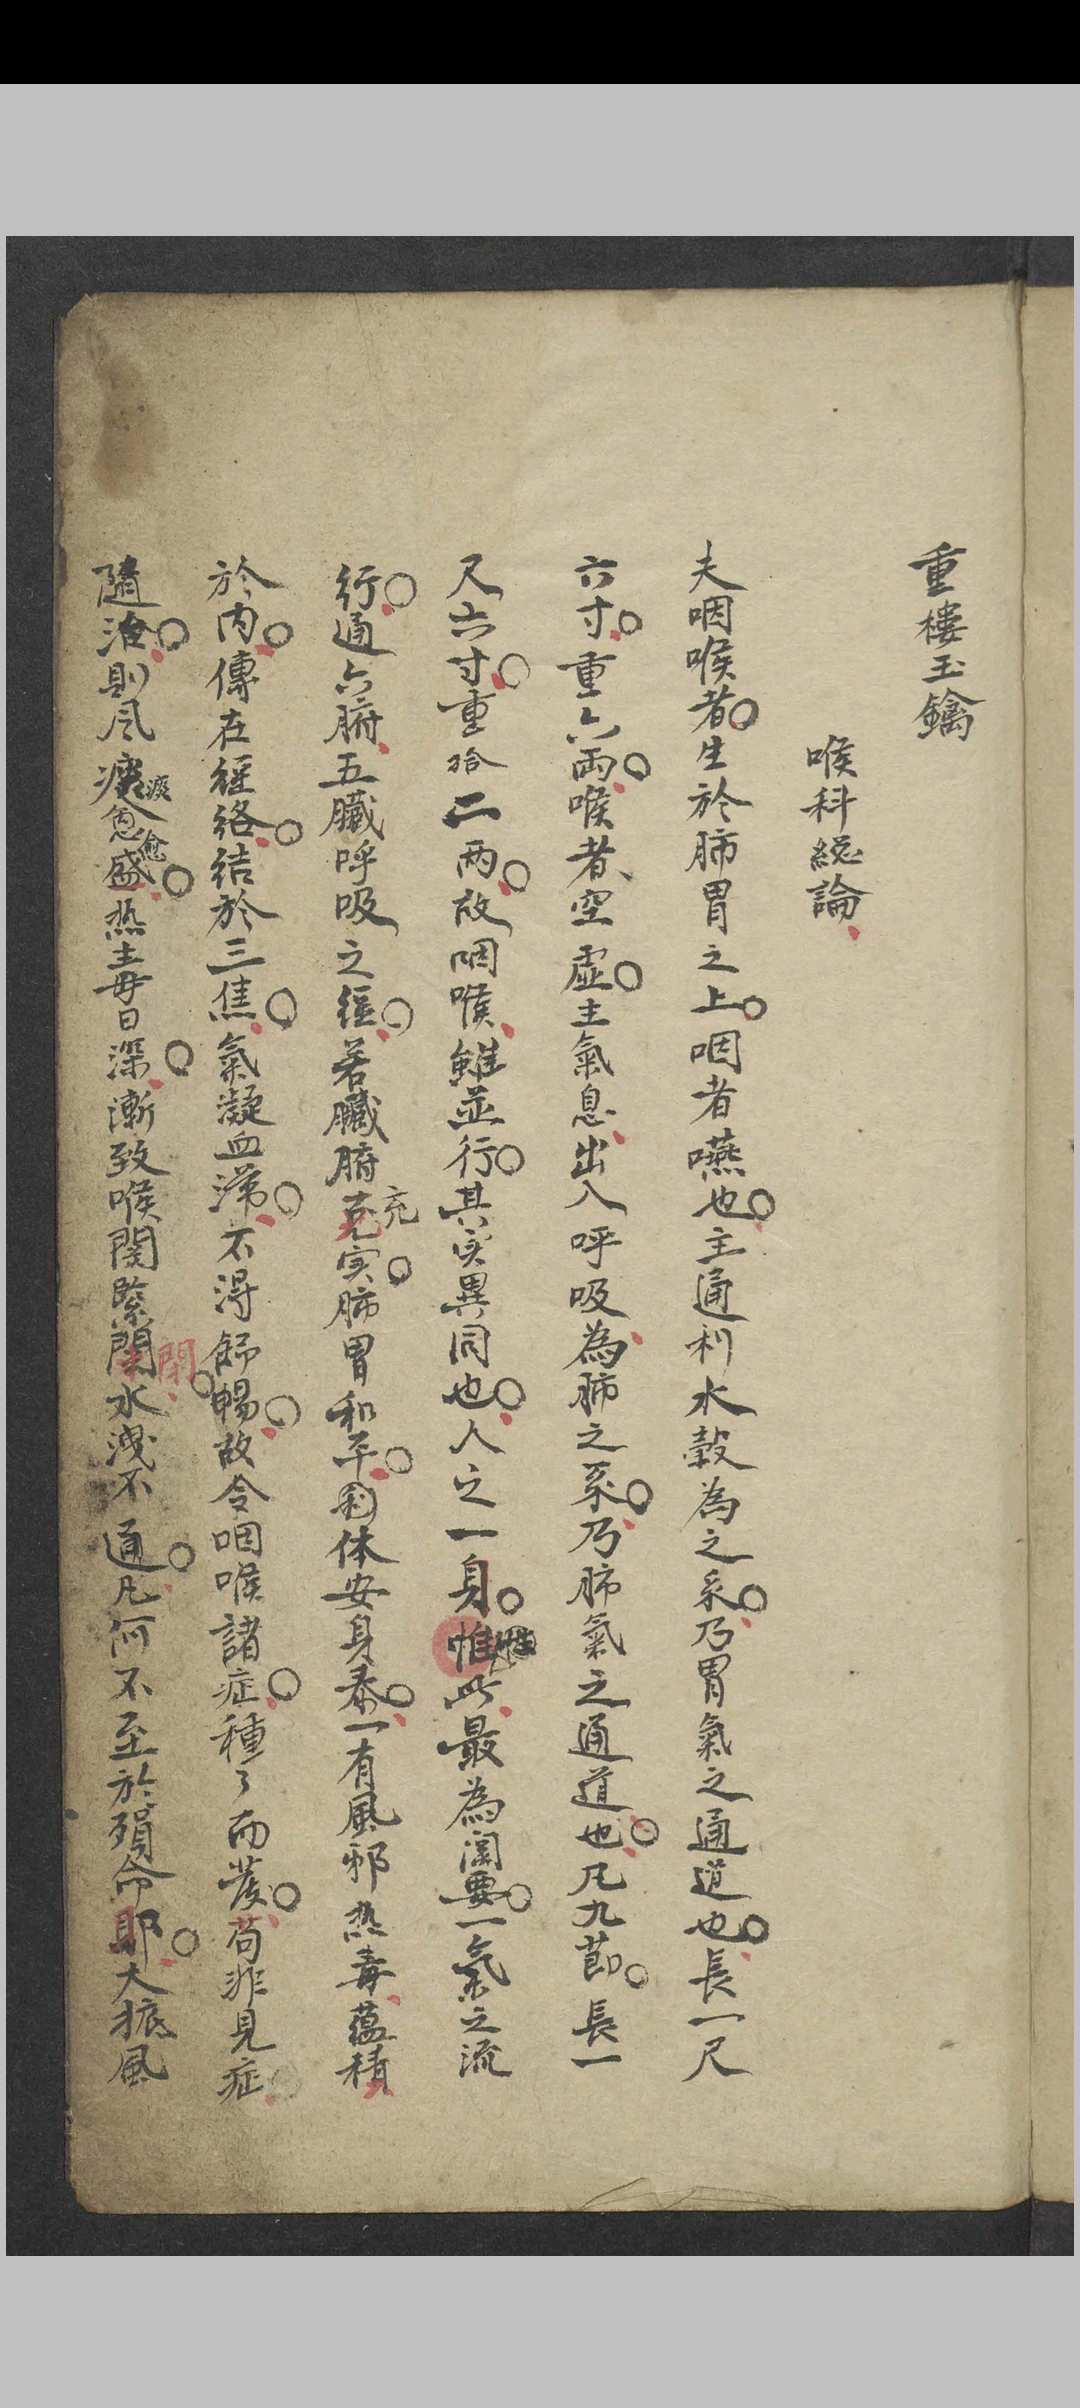 重樓玉鑰
喉科総論
夫咽喉者生於肺胃之上咽者嚥也主通利水穀為之系乃胃氣之通道也長一尺
六寸重六兩喉者空虛主氣息出入呼吸為肺之系乃肺氣之通道也凡九節長一
尺六寸重拾二兩故咽喉雖並行其实異同也人之一身惟此最為関要一氣之流
行通六腑五臟呼吸之經若臟腑充实肺胃和平則体安身泰一有風邪热毒蘊積
於內傳在經絡結於三焦氣凝血滞不得舒暢故令咽喉諸症種々而發苟非見症
隨治則風痰愈盛热毒日深漸致喉関緊閉水洩不通几何不至於殞命耶大抵風